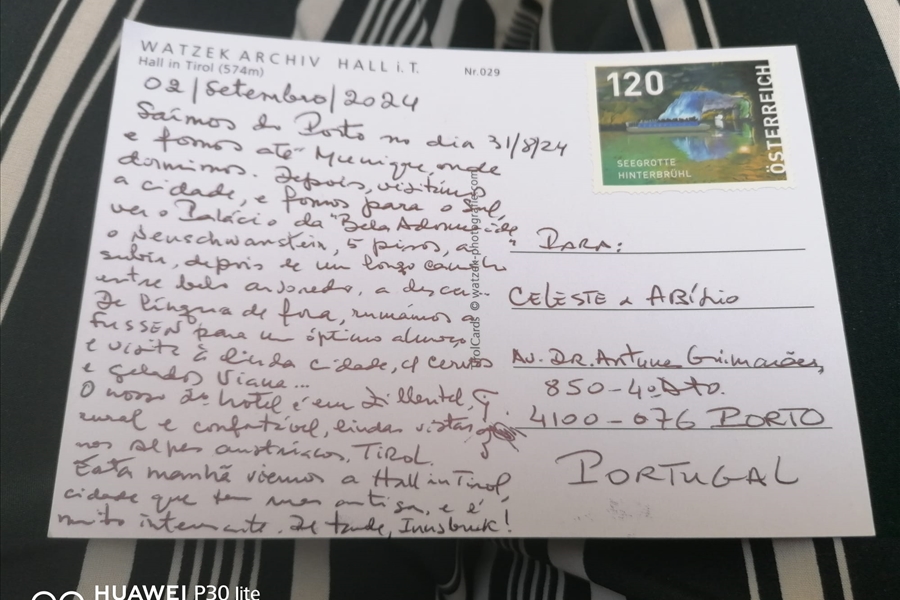 WATZEK ARCHIV HALL i.T.
Hall in Tirol (574m)
Nr.029
02/Setembro/2024
Saímos do Porto no dia 31/8/24
e fomos até Munique, onde
dormimos. Depois, visitámos
a cidade, e fomos para o Sul,
ver o Palácio da "Bela Adormecida"
o Neuschwanstein, 5 pisos, a
subir, depois de um longo caminho
entre belo arvoredo, a descer.
De língua de fora, rumámos a
FUSSEN para um óptimo almoço
e visita à linda cidade, c/ cervos
e gelados Viana...
O nosso hotel é em Zillertal,
rural e confortável, lindas vistas
nos Alpes austríacos, TIROL.
Esta manhã viemos a Hall in Tirol,
cidade que tem antiga, e é
muito interessante. De tarde, Innsbruk!
TirolCards © watzek-photografie.com
120
SEEGROTTE
HINTERBRÜHL
ÖSTERREICH
PARA:
CELESTE e ABÍLIO
Av. DR. Antunes Guimarães,
850-4º Dto.
4100-076 PORTO
PORTUGAL
HUAWEI P30 lite